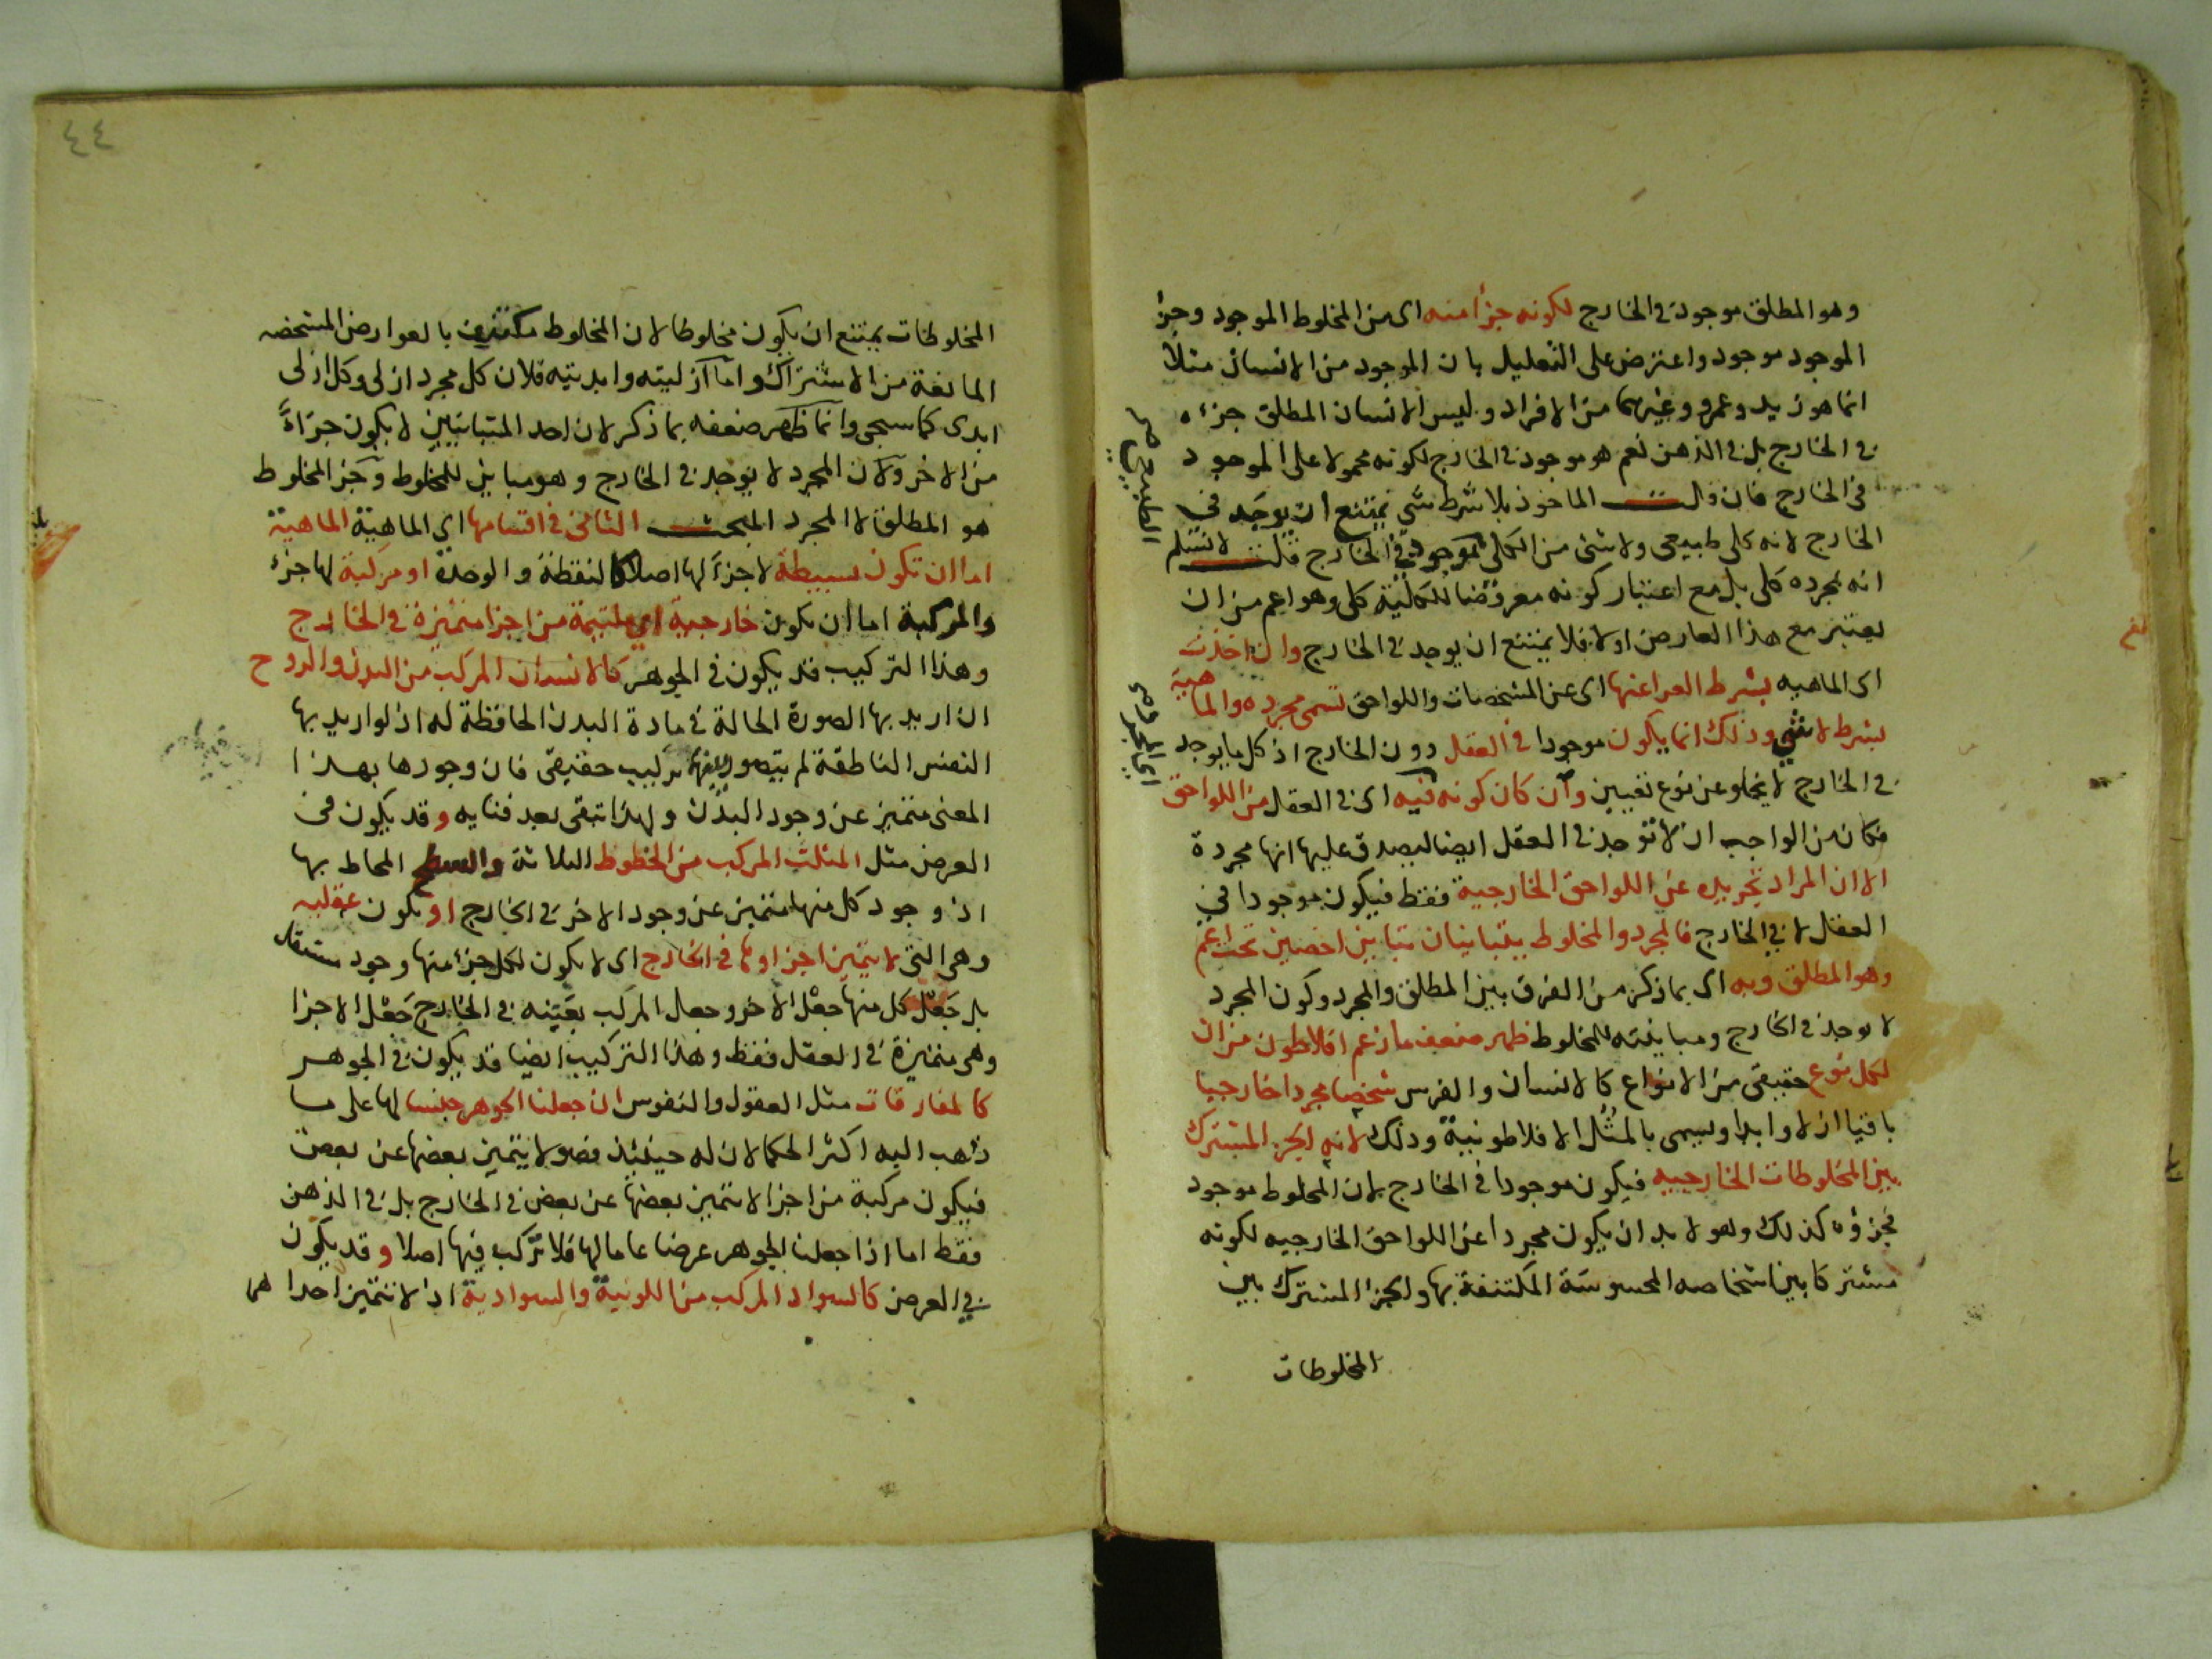 وهو المطلق موجود في الخارج لكونه جزأ منه اى من المخلوط الموجود وجزء
الموجود موجود واعترض على التعليل بان الموجود من الانسان مثلا
انما هو زيد وعمرو وغيرهما من الافراد وليس الانسان المطلق جزءه
في الخارج بل في الذهن نعم هو موجود في الخارج لكونه محمولا على الموجود
في الخارج فان قال الماخوذ بلا شرط شي يمتنع ان يوجد في
الخارج لانه كلى طبيعى ولا شئ من الكلى بموجود في الخارج قلت لا نسلم
انه بمجرده كلى بل مع اعتبار كونه معروضا للكلية كلى وهو اعم من ان
يعتبر مع هذا العارض اولا فلا يمتنع ان يوجد في الخارج وان اخذت
اى الماهيه بشرط العرا عنها اى عن المشخصات واللواحق تسمى مجرده والماهية
بشرط لا شي وذلك انما يكون موجودا في العقل دون الخارج اذ كل ما يوجد
في الخارج لا يخلو عن نوع تعيين وان كان كونه فيه اى في العقل من اللواحق
فكان من الواجب ان لا توجد في العقل ايضا ليصدق عليها انها مجردة
الا ان المراد تجريده عن اللواحق الخارجية فقط فيكون موجودا في
العقل لا في الخارج فالمجرد والمخلوط يتباينان تباين اخصين تحت اعم
وهو المطلق وبه اى بما ذكر من الفرق بين المطلق والمجرد وكون المجرد
لا يوجد في الخارج ومباينته للمخلوط ظهر ضعف ما زعم افلاطون من ان
لكل نوع حقيقى من الانواع كالانسان والفرس شخصا مجردا خارجيا
باقيا ازلا وابدا ويسمى بالمثل الافلاطونية وذلك لانه الجزء المشترك
بين المخلوطات الخارجيه فيكون موجودا في الخارج لان المخلوط موجود
فجزؤه كذلك وهو لا بد ان يكون مجردا عن اللواحق الخارجيه لكونه
مشتركا بين اشخاصه المحسوسة المكتنفة بها والجزا المشترك بين
المخلوطات
٤٤
المخلوطات يمتنع ان يكون مخلوطا لان المخلوط مكتنف بالعوارض المشخصه
المانعة من الاشتراك واما ازليته وابديته فلان كل مجرد ازلى وكل ازلى
ابدى كما سيجى وانما ظهر ضعفه بما ذكر لان احد المتباينين لا يكون جزاءً
من الاخر ولان المجرد لا يوجد في الخارج وهو مباين للمخلوط وجز المخلوط
هو المطلق لا المجرد المبحث الثانى في اقسامها اى الماهية الماهية
اما ان تكون بسيطة لا جزء لها اصلا كالنقطة والوحدة او مركبة لها جزء
والمركبة اما ان تكون خارجية اى ملتيمة من اجزا متميزة في الخارج
وهذا التركيب قد يكون في الجوهر كالانسان المركب من البدن والروح
ان اريد بها الصورة الحالة في مادة البدن الحافظة له اذ لو اريد بها
النفس الناطقة لم يتصور منها تركيب حقيقى فان وجودها بهذا
المعنى متميز عن وجود البدن ولهذا تبقى بعد فنايه وقد يكون في
العرض مثل المثلث المركب من الخطوط الثلاثة والسطح المحاط بها
اذ وجود كل منها متميز عن وجود الاخر في الخارج او يكون عقليه
وهى التى لا يتميز اجزاوها في الخارج اى لا يكون لكل جزء منها وجود مستقل
بل جَعْل كل منها جعْل الاخر وجعل المركب بعَيْنه في الخارج جَعْل الاجزا
وهى متميزة في العقل فقط وهذا التركيب ايضا قد يكون في الجوهر
كالمفارقات مثل العقول والنفوس ان جعلنا الجوهر جنسا لها على ما
ذهب اليه اكثر الحكما لان له حينئذ فصولا يتميز بعضها عن بعض
فيكون مركبة من اجزا لا يتميز بعضها عن بعض في الخارج بل في الذهن
فقط اما اذا جعلنا الجوهر عرضا عاما لها فلا تركب فيها اصلا وقد يكون
في العرض كالسواد المركب من اللونية والسوادية اذ لا تتميز احداهما